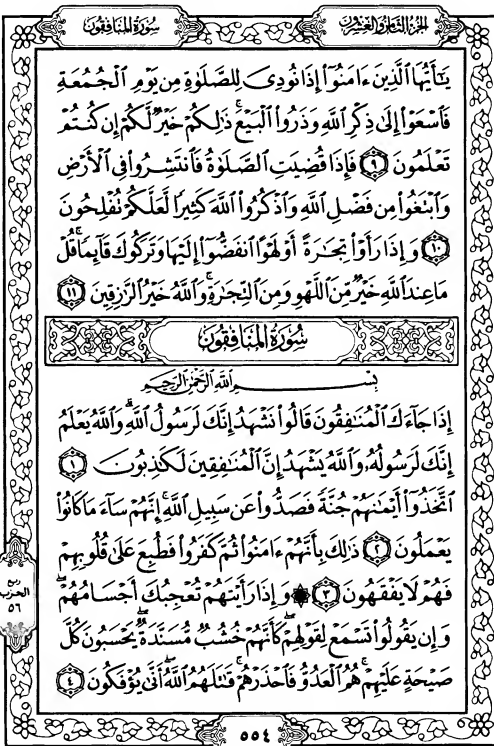 سورة المنافقون الجزء الثامن والعشرون
يَـٰٓأَيُّهَا ٱلَّذِينَ ءَامَنُوٓا۟ إِذَا نُودِىَ لِلصَّلَوٰةِ مِن يَوْمِ ٱلْجُمُعَةِ
فَٱسْعَوْا۟ إِلَىٰ ذِكْرِ ٱللَّهِ وَذَرُوا۟ ٱلْبَيْعَ ۚ ذَٰلِكُمْ خَيْرٌ لَّكُمْ إِن كُنتُمْ
تَعْلَمُونَ ٩ فَإِذَا قُضِيَتِ ٱلصَّلَوٰةُ فَٱنتَشِرُوا۟ فِى ٱلْأَرْضِ
وَٱبْتَغُوا۟ مِن فَضْلِ ٱللَّهِ وَٱذْكُرُوا۟ ٱللَّهَ كَثِيرًا لَّعَلَّكُمْ تُفْلِحُونَ
١٠ وَإِذَا رَأَوْا۟ تِجَـٰرَةً أَوْ لَهْوًا ٱنفَضُّوٓا۟ إِلَيْهَا وَتَرَكُوكَ قَآئِمًا ۚ قُلْ
مَا عِندَ ٱللَّهِ خَيْرٌ مِّنَ ٱللَّهْوِ وَمِنَ ٱلتِّجَـٰرَةِ ۚ وَٱللَّهُ خَيْرُ ٱلرَّٰزِقِينَ ١١
سُورَةُ المُنَافِقُونَ
بِسْمِ ٱللَّهِ ٱلرَّحْمَـٰنِ ٱلرَّحِيمِ
إِذَا جَآءَكَ ٱلْمُنَـٰفِقُونَ قَالُوا۟ نَشْهَدُ إِنَّكَ لَرَسُولُ ٱللَّهِ ۗ وَٱللَّهُ يَعْلَمُ
إِنَّكَ لَرَسُولُهُۥ وَٱللَّهُ يَشْهَدُ إِنَّ ٱلْمُنَـٰفِقِينَ لَكَـٰذِبُونَ ١
ٱتَّخَذُوٓا۟ أَيْمَـٰنَهُمْ جُنَّةً فَصَدُّوا۟ عَن سَبِيلِ ٱللَّهِ ۚ إِنَّهُمْ سَآءَ مَا كَانُوا۟
يَعْمَلُونَ ٢ ذَٰلِكَ بِأَنَّهُمْ ءَامَنُوا۟ ثُمَّ كَفَرُوا۟ فَطُبِعَ عَلَىٰ قُلُوبِهِمْ
فَهُمْ لَا يَفْقَهُونَ ٣ ۞ وَإِذَا رَأَيْتَهُمْ تُعْجِبُكَ أَجْسَامُهُمْ ۖ
وَإِن يَقُولُوا۟ تَسْمَعْ لِقَوْلِهِمْ ۖ كَأَنَّهُمْ خُشُبٌ مُّسَنَّدَةٌ ۖ يَحْسَبُونَ كُلَّ
صَيْحَةٍ عَلَيْهِمْ ۚ هُمُ ٱلْعَدُوُّ فَٱحْذَرْهُمْ ۚ قَـٰتَلَهُمُ ٱللَّهُ ۖ أَنَّىٰ يُؤْفَكُونَ ٤
ربع
الحزب
٥٦
٥٥٤